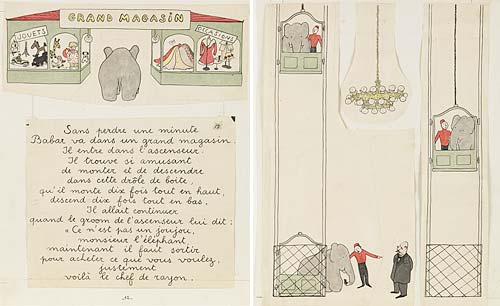 GRAND MAGASIN
JOUETS
OCCASIONS
Sans perdre une minute
Babar va dans un grand magasin.
Il entre dans l'ascenseur.
Il trouve si amusant
de monter et de descendre
dans cette drôle de boîte,
qu'il monte dix fois tout en haut,
descend dix fois tout en bas.
Il allait continuer
quand le groom de l'ascenseur lui dit:
«Ce n'est pas un joujou,
monsieur l'éléphant,
maintenant il faut sortir
pour acheter ce que vous voulez,
justement
voilà le chef de rayon.